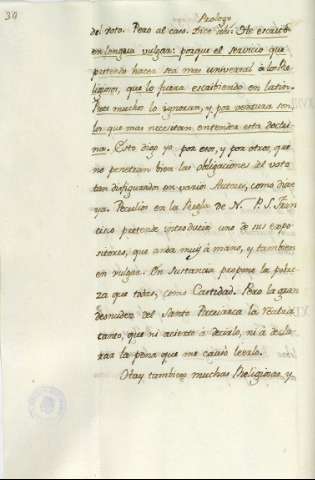 30
Prologo
del voto. Pero al caso. Dice ahi: He escrito
en lengua vulgar: porque el servicio que
pretendo hacer sea mas universal à los Re-
ligiosos, que lo fuera escribiendo en latin.
Pues muchos lo ignoran, y por ventura son
los que mas necesitan entender esta doctri-
na. Esto digo yo por eso, y por otros, que
no penetran bien las obligaciones del voto
tan disfigurado en varios Autores, como dixe
ya. Peculios en la Regla de N. P. S. Fran-
cisco pretende introducir uno de sus expo-
sitores, que anda muy à mano, y tambien
en vulgar. En sustancia propone la pobre-
za que todos, como Castidad. Pero la gran
desnudez del Santo Patriarca la recata
tanto, que ni acierto à decirlo, ni à decla-
rar la pena que me causò leerlo.
Hay tambien muchas Religiosas, y